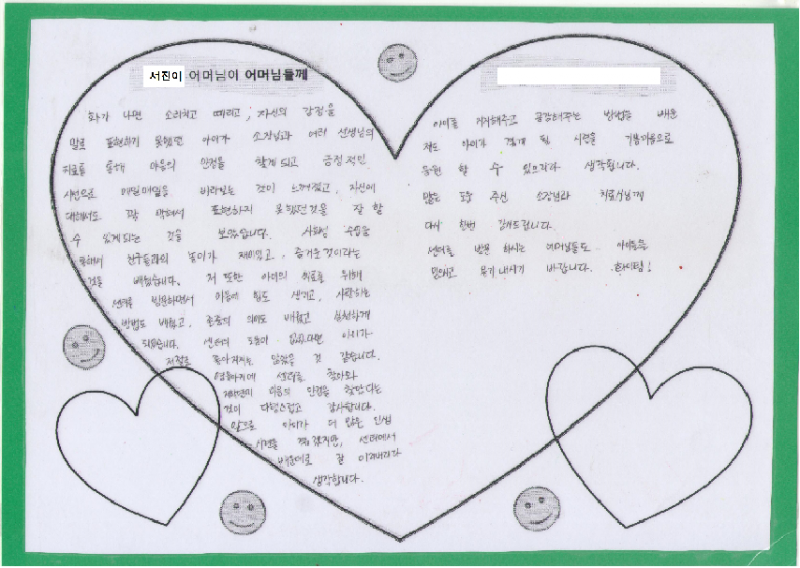 서진이 어머님이 어머님들께
화가 나면 소리치고 때리고, 자신의 감정을
말로 표현하기 못했던 아이가 소장님과 여러 선생님의
치료를 통해 마음의 안정을 찾게되고 긍정적인
시선으로 매일매일을 바라보는 것이 느껴졌고, 자신에
대해서도 꽉 막혀서 표현하지 못했던것을 잘 할
수 있게되는 것을 보았습니다. 사회성 수업을
통해서 친구들과의 놀이가 재미있고, 즐거운것이라는
것을 배웠습니다. 저 또한 아이의 치료를 위해
센터를 방문하면서 마음에 힘도 생기고, 사랑하는
방법도 배웠고, 존중의 의미도 배웠고 실천하게
되었습니다. 센터의 도움이 없었다면 아이가
저절로 좋아지지는 않았을 것 같습니다.
센터를 찾아와
마음의 안정을 찾았다는
것이 다행스럽고 감사합니다.
앞으로 아이가 더 많은 인생
시련을 겪겠지만, 센터에서
배운대로 잘 이겨내리라
생각합니다.
아이를 지지해주고 공감해주는 방법을 배운
저도 아이가 겪게 될 시련을 기쁜마음으로
응원 할 수 있으리라 생각됩니다.
많은 도움 주신 소장님과 치료사님께
다시 한번 감사드립니다.
센터를 방문 하시는 어머님들도 아이들을
믿으시고 용기 내시기 바랍니다. 화이팅!